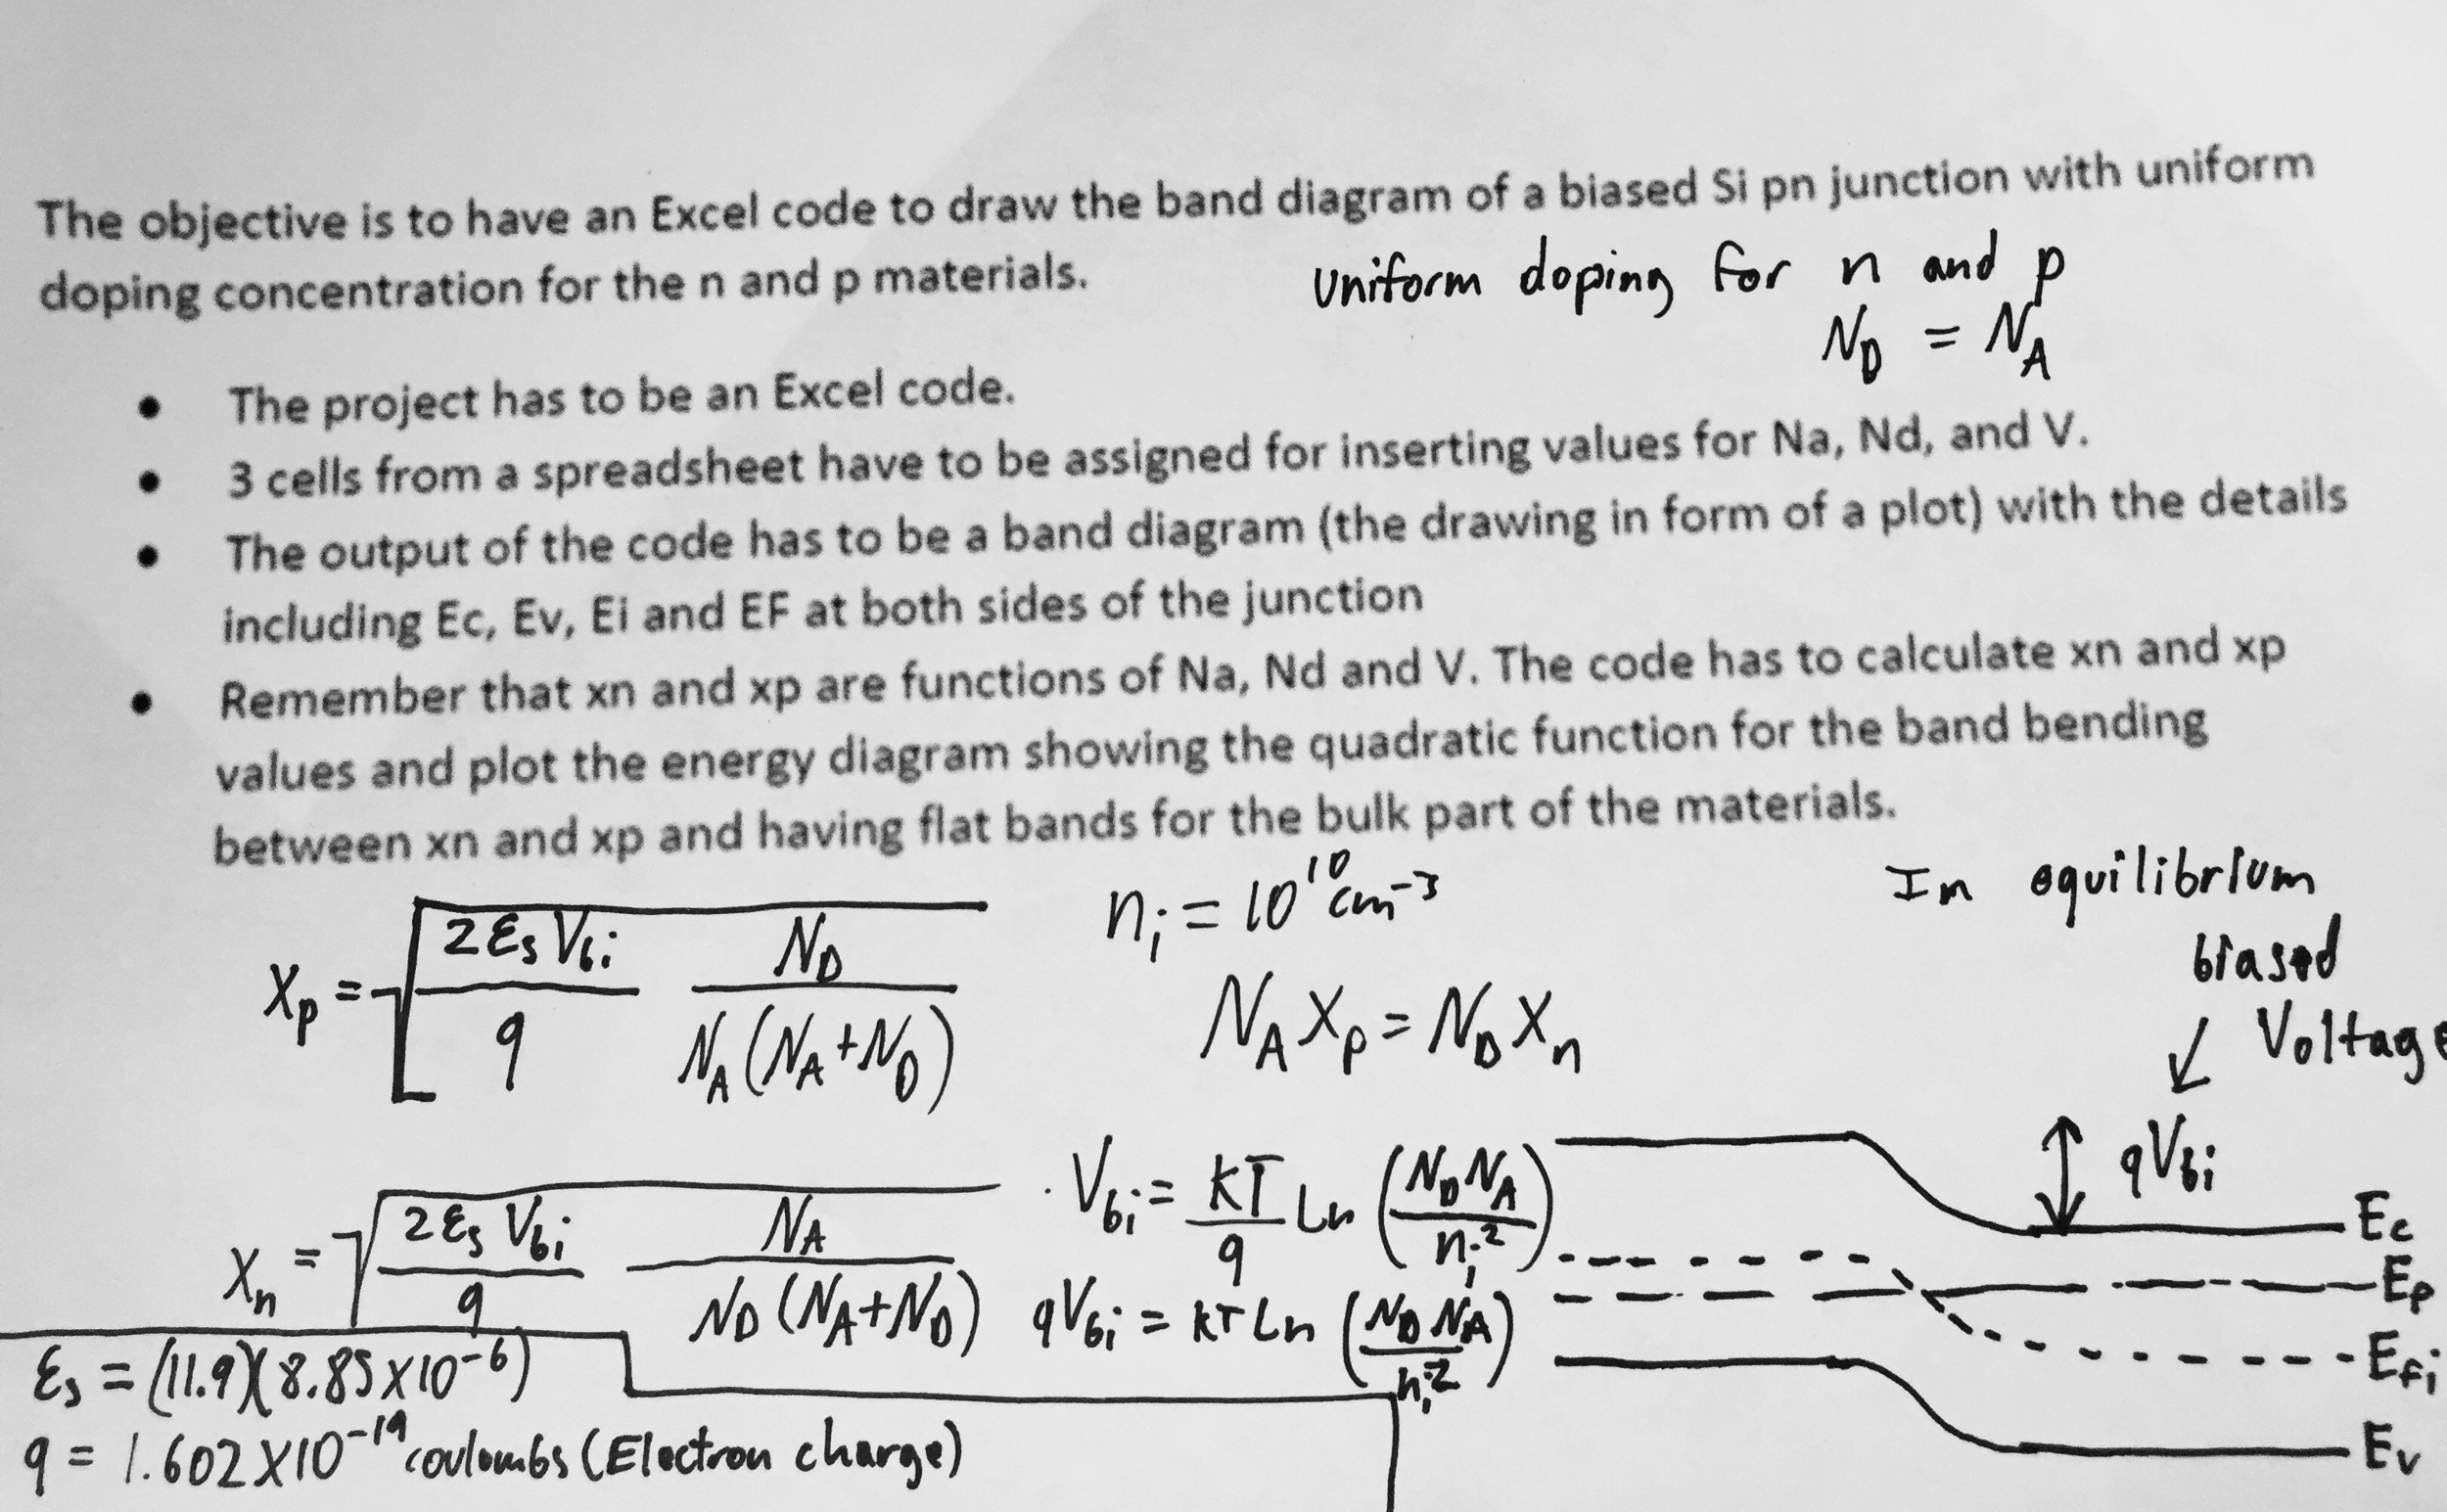 The objective is to have an Excel code to draw the band diagram of a biased Si pn junction with uniform
doping concentration for the n and p materials.
Uniform doping for n and p
N_D = N_A
• The project has to be an Excel code.
• 3 cells from a spreadsheet have to be assigned for inserting values for Na, Nd, and V.
• The output of the code has to be a band diagram (the drawing in form of a plot) with the details
including Ec, Ev, Ei and EF at both sides of the junction
• Remember that xn and xp are functions of Na, Nd and V. The code has to calculate xn and xp
values and plot the energy diagram showing the quadratic function for the band bending
between xn and xp and having flat bands for the bulk part of the materials.
X_p = √(2ε_s V_bi / q · N_D / N_A(N_A+N_D))
n_i = 10^10 cm^-3
N_A X_p = N_D X_n
In equilibrium
biased
Voltage
qV_bi
X_n = √(2ε_s V_bi / q · N_A / N_D(N_A+N_D))
V_bi = kT/q Ln (N_D N_A / n_i^2)
qV_bi = kT Ln (N_D N_A / n_i^2)
Ec
E_p
E_fi
Ev
ε_s = (11.9)(8.85×10^-6)
q = 1.602×10^-19 coulombs (Electron charge)